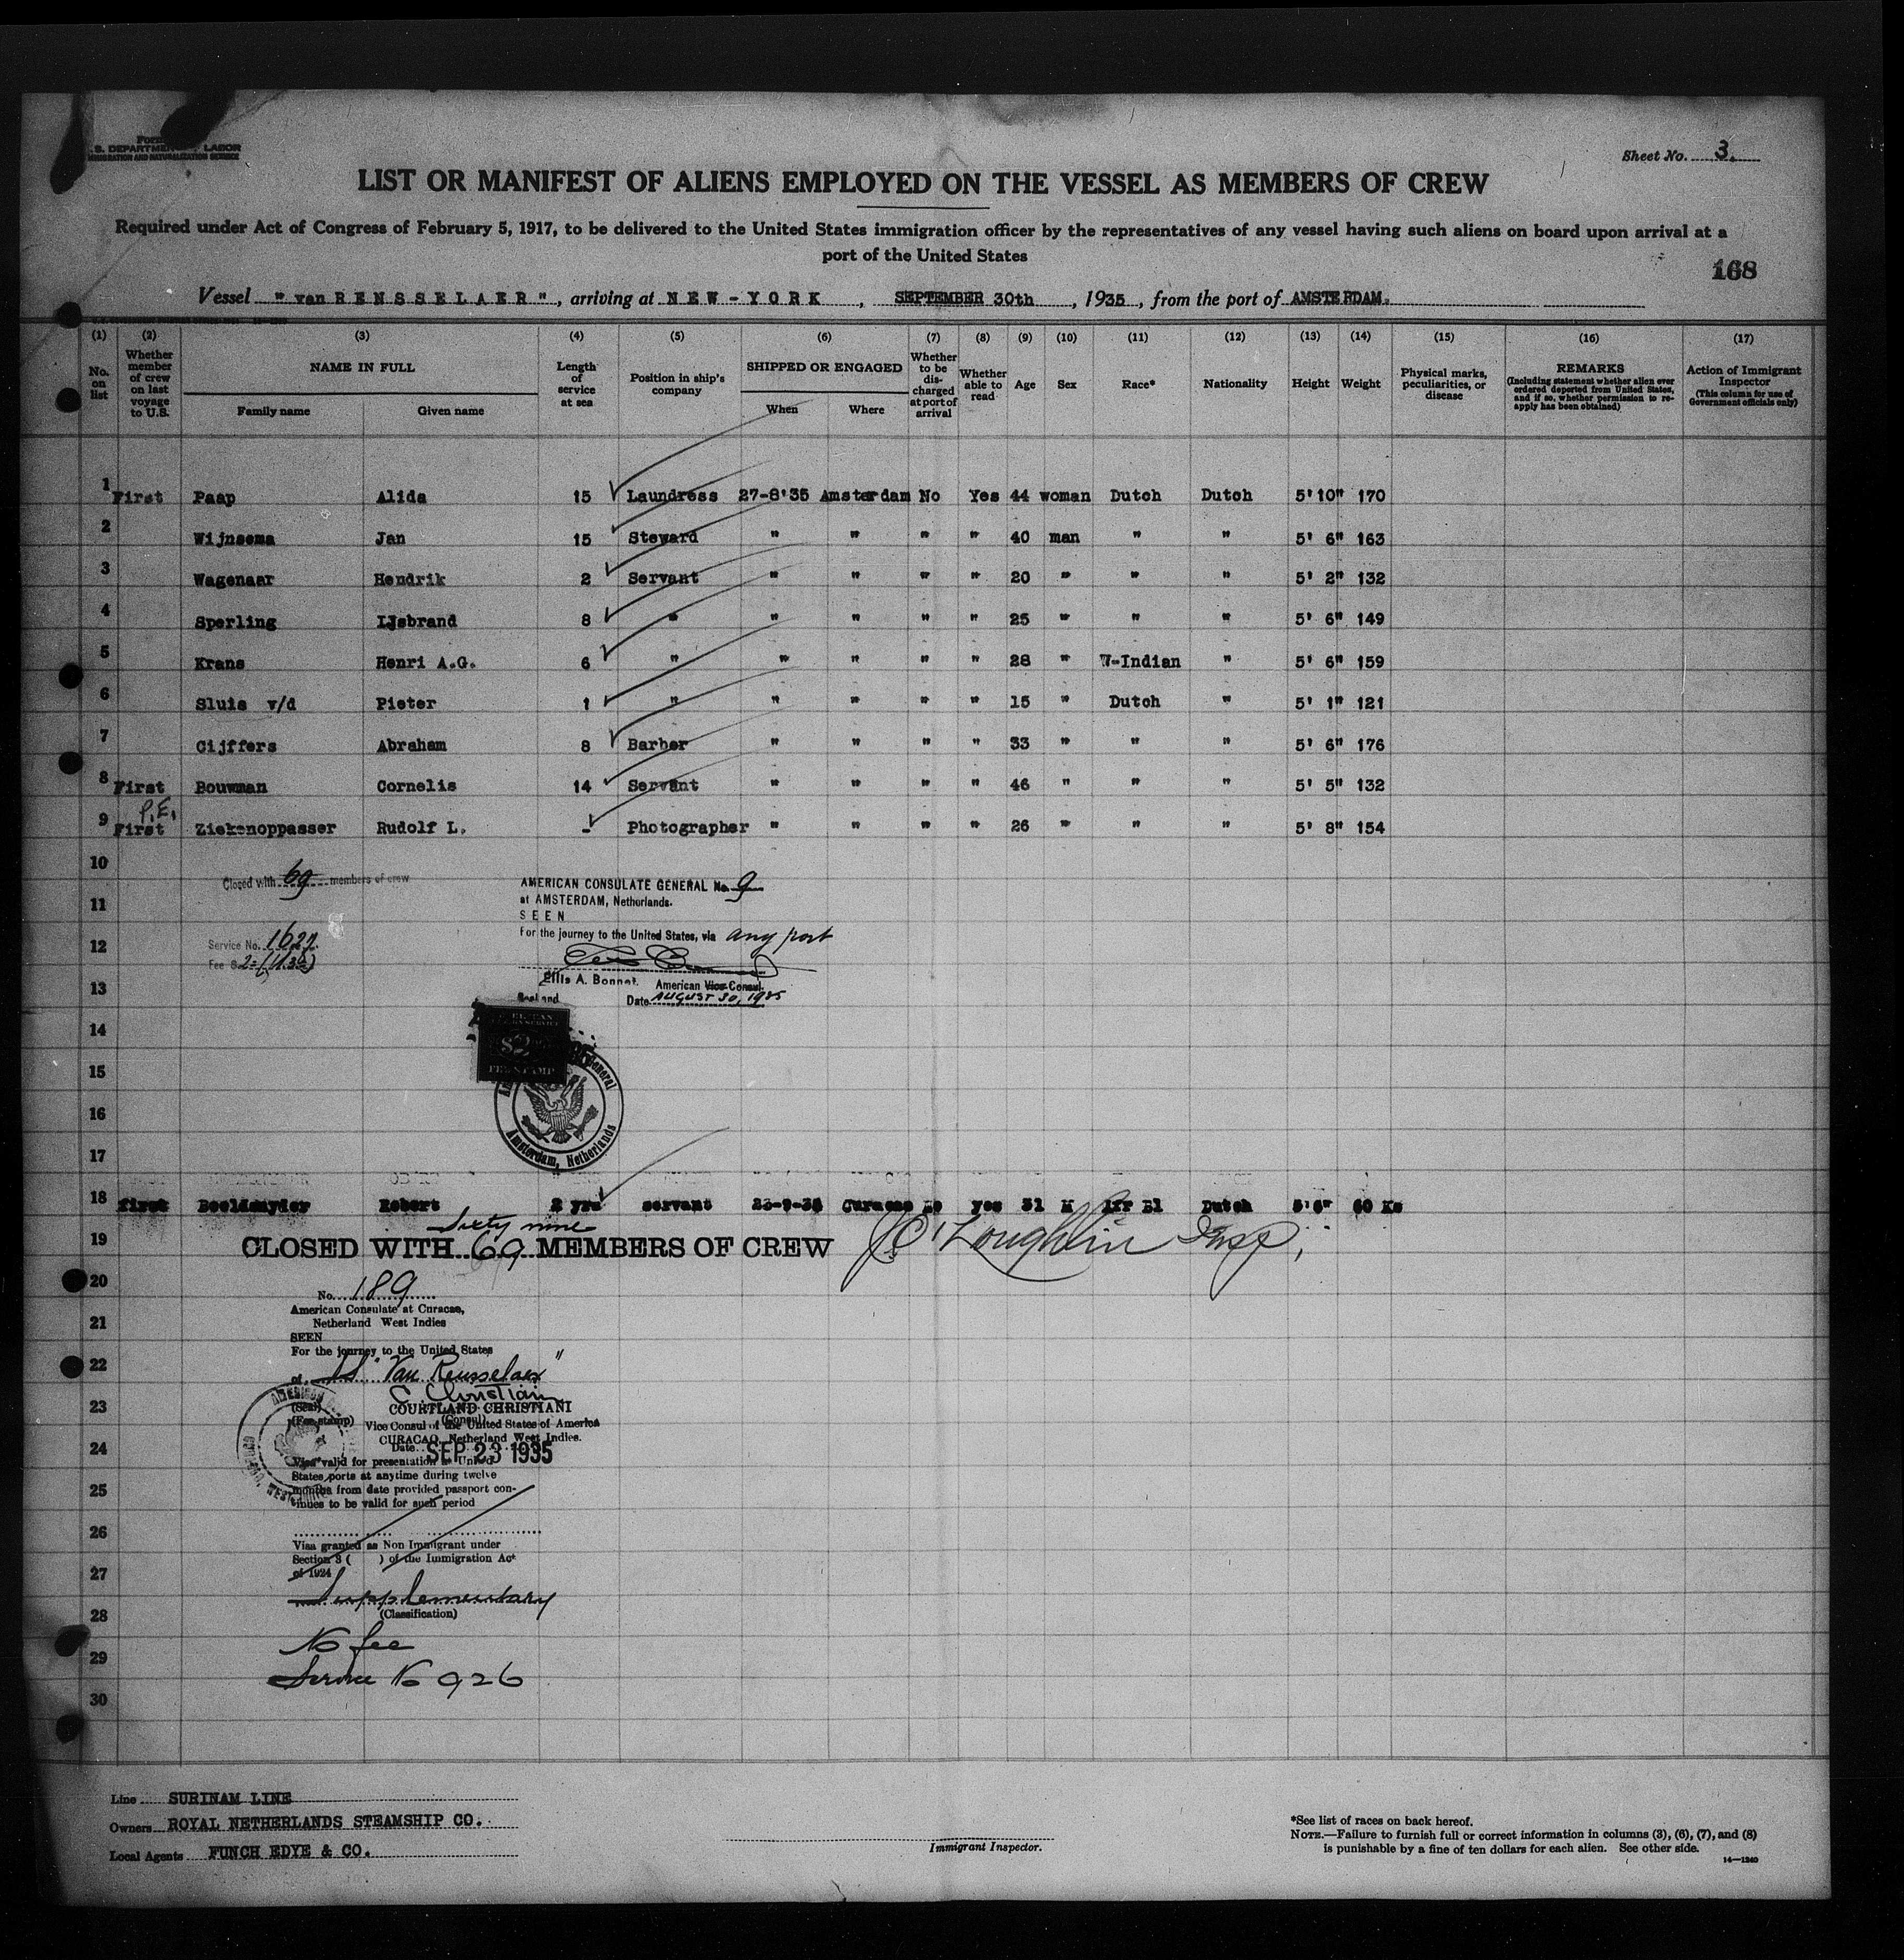 Form
U.S. DEPARTMENT OF LABOR
IMMIGRATION AND NATURALIZATION SERVICE
Sheet No. 3.
LIST OR MANIFEST OF ALIENS EMPLOYED ON THE VESSEL AS MEMBERS OF CREW
Required under Act of Congress of February 5, 1917, to be delivered to the United States immigration officer by the representatives of any vessel having such aliens on board upon arrival at a
port of the United States
168
Vessel "van RENSSELAER", arriving at NEW-YORK, SEPTEMBER 30th, 1935, from the port of AMSTERDAM.
(1) (2) (3) (4) (5) (6) (7) (8) (9) (10) (11) (12) (13) (14) (15) (16) (17)
No. on list
Whether member of crew on last voyage to U.S.
NAME IN FULL
Family name Given name
Length of service at sea
Position in ship's company
SHIPPED OR ENGAGED
When Where
Whether to be discharged at port of arrival
Whether able to read
Age
Sex
Race*
Nationality
Height
Weight
Physical marks, peculiarities, or disease
REMARKS
(Including statement whether alien ever ordered deported from United States, and if so, whether permission to re-apply has been obtained)
Action of Immigrant Inspector
(This column for use of Government officials only)
1 First Paap Alida 15 Laundress 27-8'35 Amsterdam No Yes 44 woman Dutch Dutch 5'10" 170
2 Wijnsema Jan 15 Steward " " " " 40 man " " 5' 6" 163
3 Wagenaar Hendrik 2 Servant " " " " 20 " " " 5' 2" 132
4 Sperling IJsbrand 8 " " " " " 25 " " " 5' 6" 149
5 Krans Henri A.G. 6 " " " " " 28 " W-Indian " 5' 6" 159
6 Sluis v/d Pieter 1 " " " " " 15 " Dutch " 5' 1" 121
7 Cijffers Abraham 8 Barber " " " " 33 " " " 5' 6" 176
8 First Bouwman Cornelis 14 Servant " " " " 46 " " " 5' 5" 132
P.E.
9 First Ziekenoppasser Rudolf L. - Photographer " " " " 26 " " " 5' 8" 154
10
Closed with 69 members of crew
AMERICAN CONSULATE GENERAL No. 9
11
at AMSTERDAM, Netherlands.
SEEN
12
For the journey to the United States, via any port
Service No. 1627
Fee $ 2=
13
Ellis A. Bonnet. American Vice Consul.
Date AUGUST 30, 1935
14
$2
FEE STAMP
15
General
16
Amsterdam, Netherlands
17
18 first Robert 2 yrs servant Curacao No yes 31 M Afr Bl Dutch 5'6" 60 Ks
Sixty nine
19 CLOSED WITH 69 MEMBERS OF CREW J C Loughlin Insp,
20
No. 189
American Consulate at Curacao,
21
Netherland West Indies
SEEN
For the journey to the United States
22
of SS "Van Rensselaer"
C Christiani
23
(Seal) COURTLAND CHRISTIANI
(Fee stamp) (Consul)
Vice Consul of the United States of America
CURACAO, Netherland West Indies.
24
Date SEP 23 1935
Visa valid for presentation at United
States ports at anytime during twelve
25
months from date provided passport con-
tinues to be valid for such period
26
Visa granted as Non Immigrant under
Section 3 ( ) of the Immigration Act
27
of 1924
Supplementary
28
(Classification)
No fee
29
Service No 926
30
Line SURINAM LINE
Owners ROYAL NETHERLANDS STEAMSHIP CO.
Local Agents FUNCH EDYE & CO.
Immigrant Inspector.
*See list of races on back hereof.
NOTE.—Failure to furnish full or correct information in columns (3), (6), (7), and (8)
is punishable by a fine of ten dollars for each alien. See other side.
14—1240